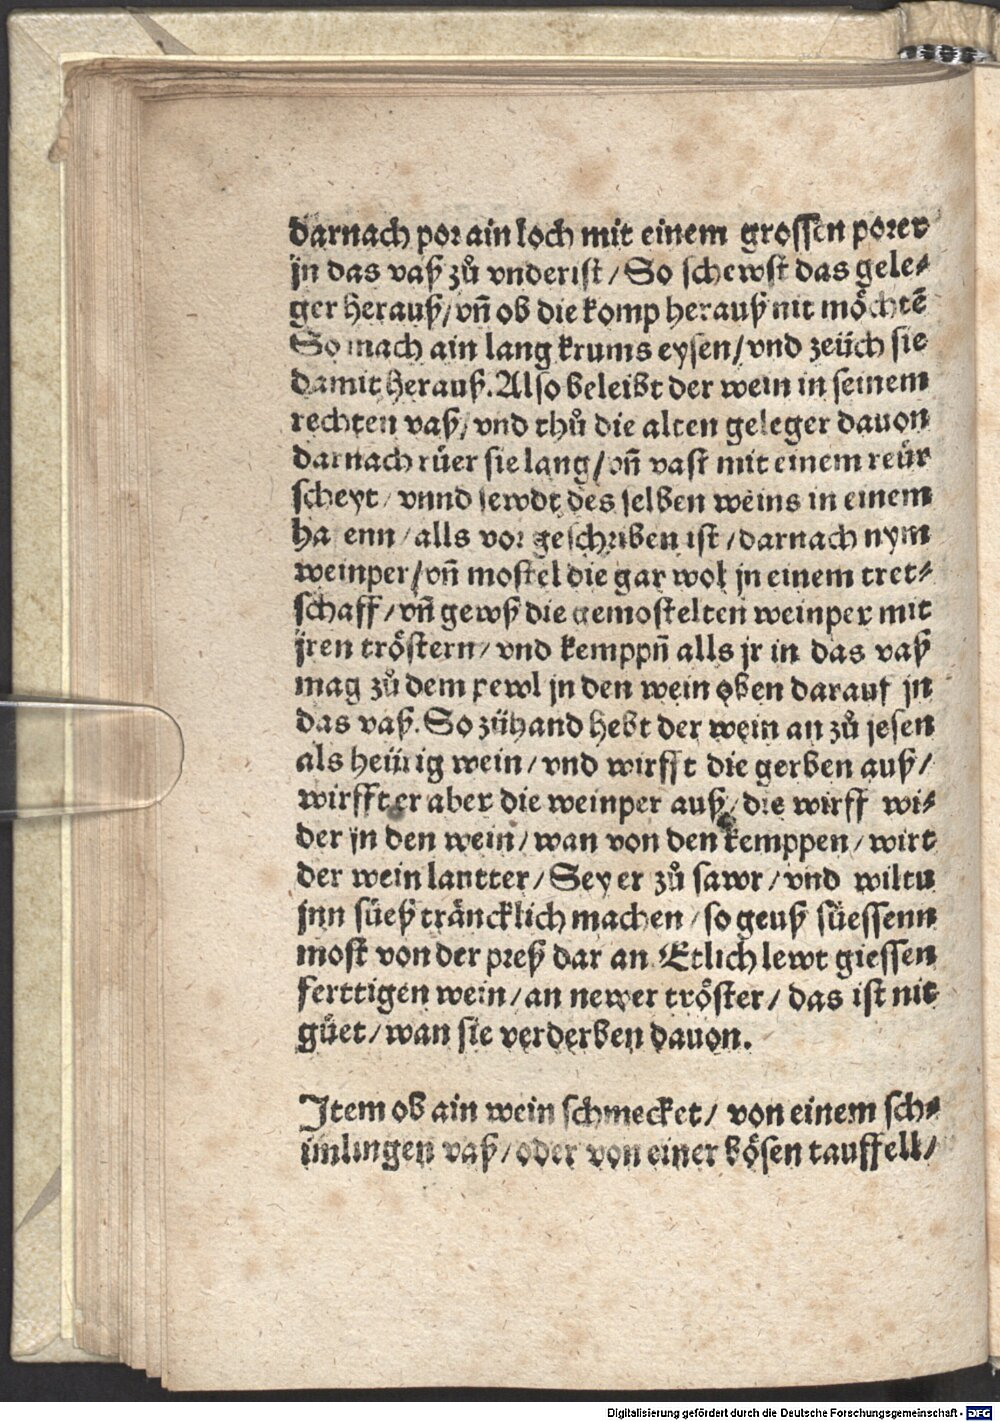 darnach por ain loch mit einem grossen porer
jn das vaß zů vnderist / So schewst das gele⸗
ger herauß / vñ ob die komp herauß nit möchtẽ
So mach ain lang krums eysen / vnd zeüch sie
damit herauß. Also beleibt der wein in seinem
rechten vaß / vnd thů die alten geleger dauon
darnach rüer sie lang / vñ vast mit einem reür
scheyt / vnnd sewdt des selben weins in einem
ha enn / alls vor geschriben ist / darnach nym
weinper / vñ mostel die gar wol jn einem tret⸗
schaff / vñ gewß die gemostelten weinper mit
jren tröstern / vnd kemppñ alls jr in das vaß
mag zů dem pewl jn den wein oben darauf jn
das vaß. So zühand hebt der wein an zů jesen
als heürig wein / vnd wirfft die gerben auß /
wirfft er aber die weinper auß / die wirff wi⸗
der jn den wein / wan von den kemppen / wirt
der wein lautter / Sey er zů sawr / vnd wiltu
jnn süeß träncklich machen / so geuß süessenn
most von der preß dar an Etlich lewt giessen
ferttigen wein / an newer tröster / das ist nit
gůet / wan sie verderben dauon.
Item ob ain wein schmecket / von einem sch⸗
imlingen vaß / oder von einer bösen tauffell /
Digitalisierung gefördert durch die Deutsche Forschungsgemeinschaft - DFG